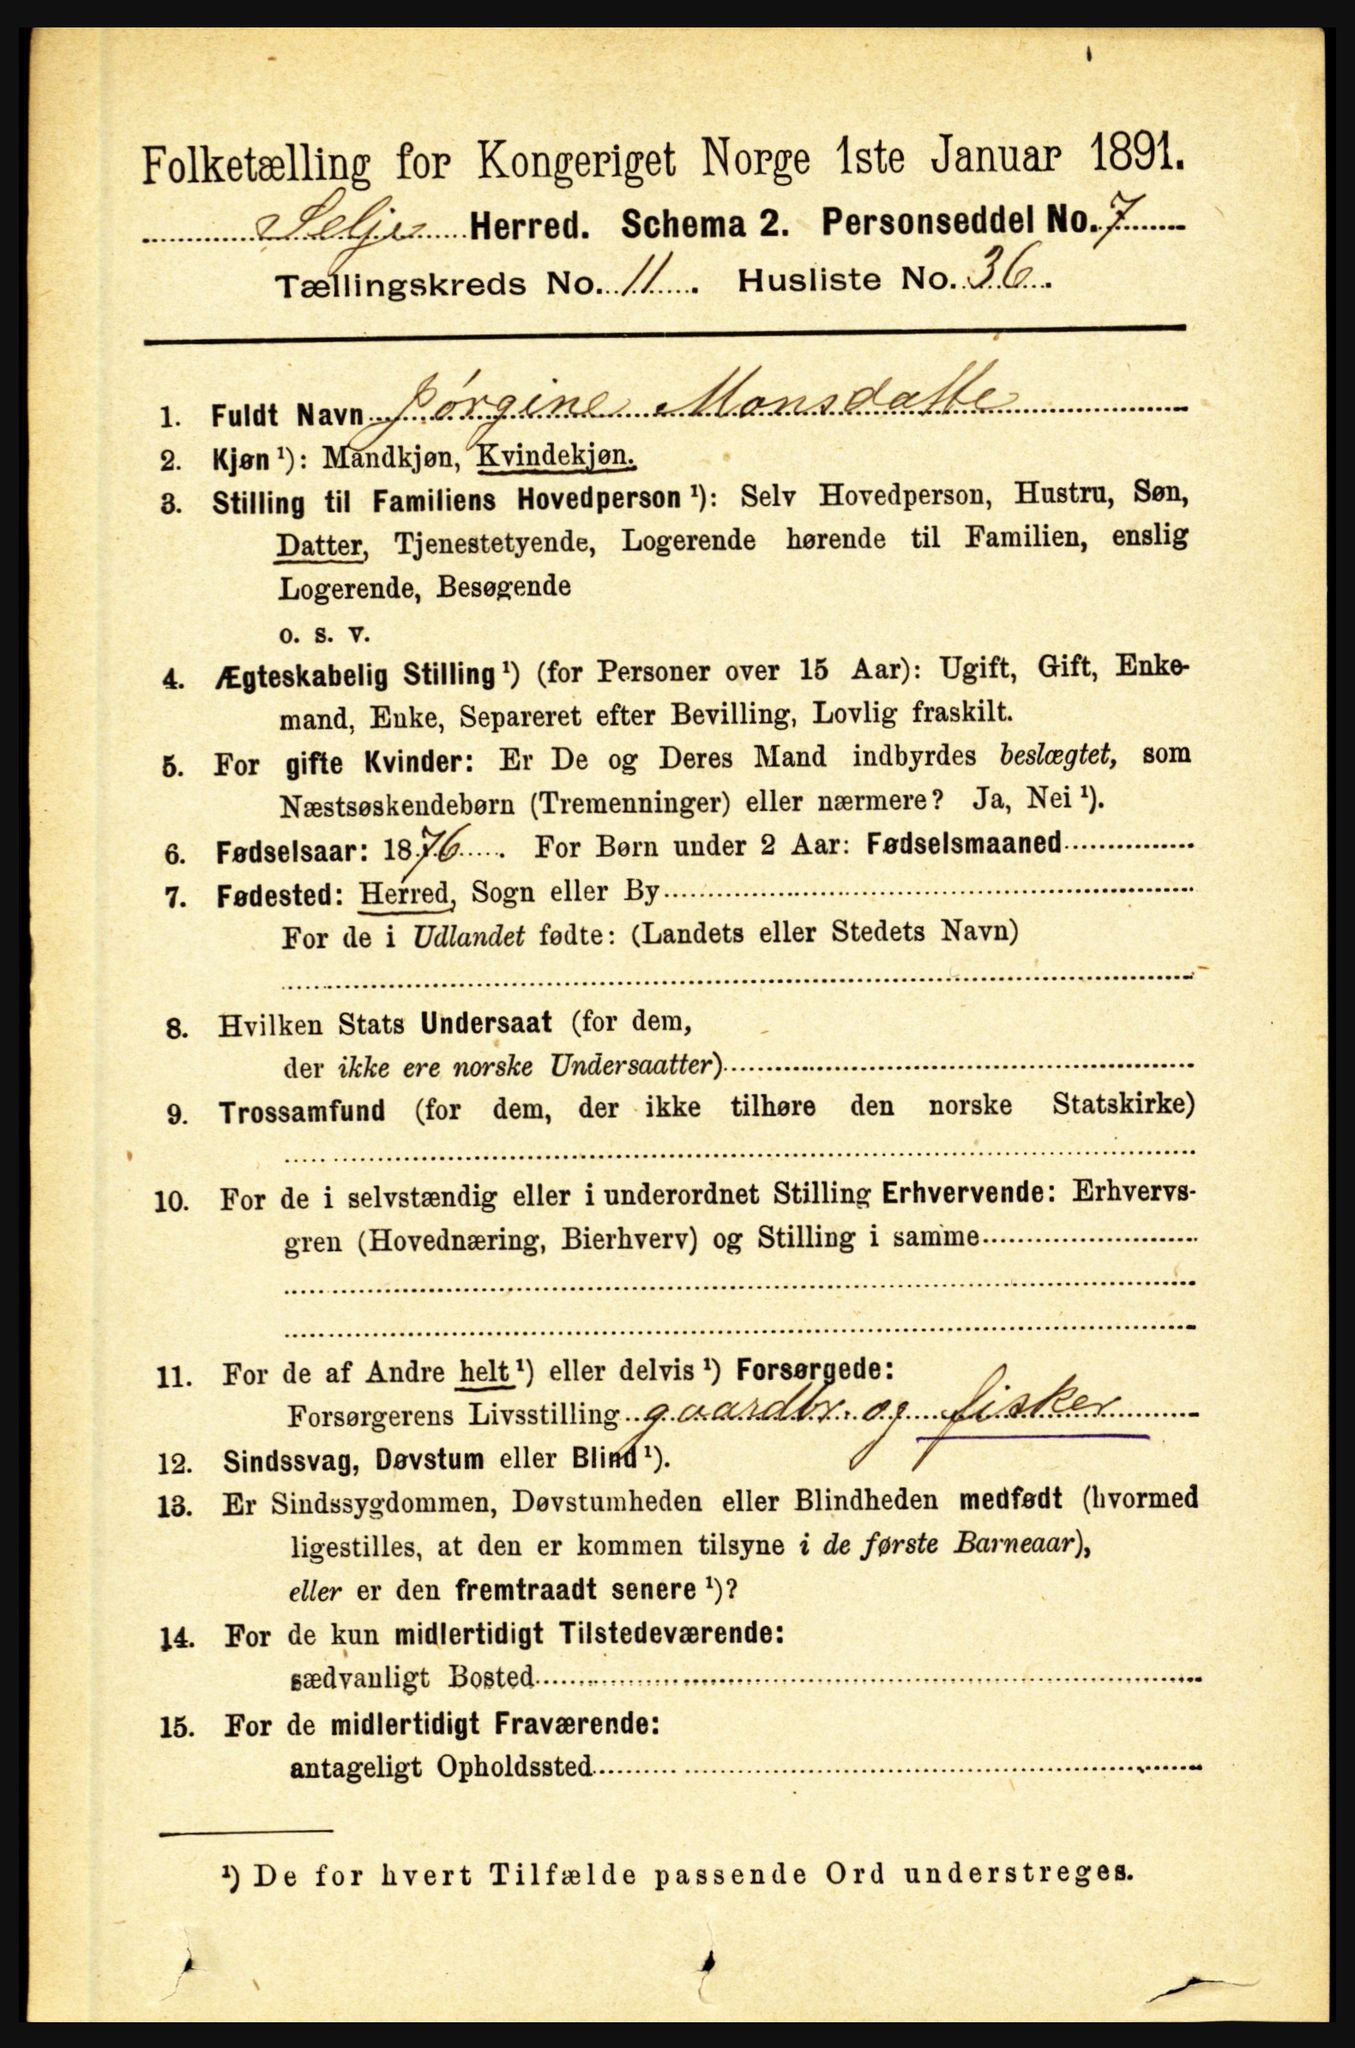 Folketælling for Kongeriget Norge 1ste Januar 1891.
Selje Herred. Schema 2. Personseddel No. 7
Tællingskreds No. 11. Husliste No. 36.
1. Fuldt Navn Jørgine Monsdatte
2. Kjøn ¹): Mandkjøn, Kvindekjøn.
3. Stilling til Familiens Hovedperson ¹): Selv Hovedperson, Hustru, Søn,
Datter, Tjenestetyende, Logerende hørende til Familien, enslig
Logerende, Besøgende
o. s. v.
4. Ægteskabelig Stilling ¹) (for Personer over 15 Aar): Ugift, Gift, Enke-
mand, Enke, Separeret efter Bevilling, Lovlig fraskilt.
5. For gifte Kvinder: Er De og Deres Mand indbyrdes beslægtet, som
Næstsøskendebørn (Tremenninger) eller nærmere? Ja, Nei ¹).
6. Fødselsaar: 1876. For Børn under 2 Aar: Fødselsmaaned
7. Fødested: Herred, Sogn eller By
For de i Udlandet fødte: (Landets eller Stedets Navn)
8. Hvilken Stats Undersaat (for dem,
der ikke ere norske Undersaatter)
9. Trossamfund (for dem, der ikke tilhøre den norske Statskirke)
10. For de i selvstændig eller i underordnet Stilling Erhvervende: Erhvervs-
gren (Hovednæring, Bierhverv) og Stilling i samme
11. For de af Andre helt ¹) eller delvis ¹) Forsørgede:
Forsørgerens Livsstilling gaardbr. og fisker
12. Sindssvag, Døvstum eller Blind ¹).
13. Er Sindssygdommen, Døvstumheden eller Blindheden medfødt (hvormed
ligestilles, at den er kommen tilsyne i de første Barneaar),
eller er den fremtraadt senere ¹)?
14. For de kun midlertidigt Tilstedeværende:
sædvanligt Bosted
15. For de midlertidigt Fraværende:
antageligt Opholdssted
¹) De for hvert Tilfælde passende Ord understreges.